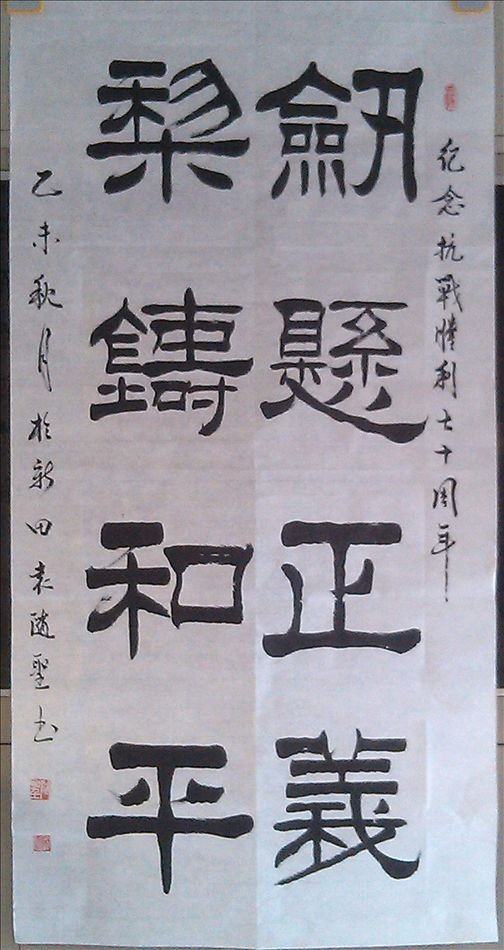 紀念抗戰勝利七十周年
劔懸正義
棃鑄和平
乙未秋月於新田袁随聖书